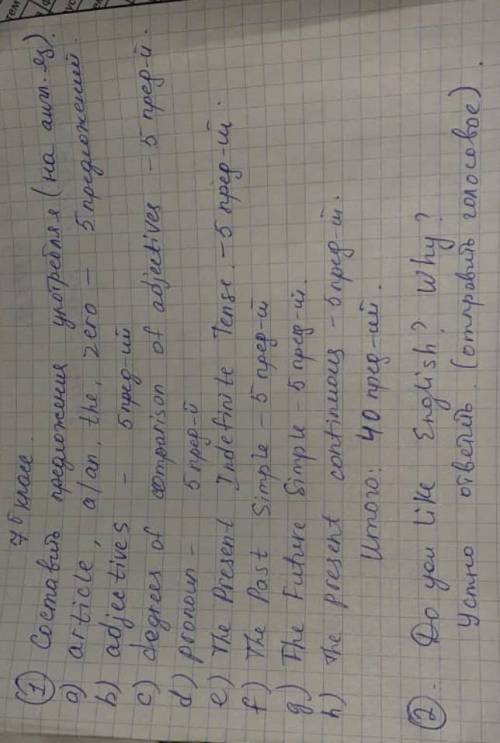 7б класс.
① Составить предложения употребляя (на англ. яз).
a) article, a/an, the, zero – 5 предложений.
b) adjectives – 5 пред-ий
c) degrees of comparison of adjectives – 5 пред-й.
d) pronoun – 5 пред-й
e) The Present Indefinite Tense. – 5 пред-ий.
f) The Past Simple – 5 пред-ий
g) The Future Simple – 5 пред-ий.
h) The present continuous – 5 пред-й.
Итого: 40 пред-ий.
②. Do you like English? Why?
Устно ответить (отправить голосовое).